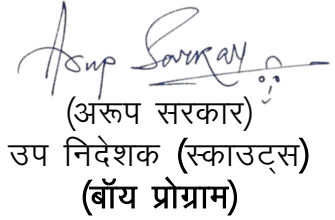 Arup Sarkar
(अरूप सरकार)
उप निदेशक (स्काउट्स)
(बॉय प्रोग्राम)